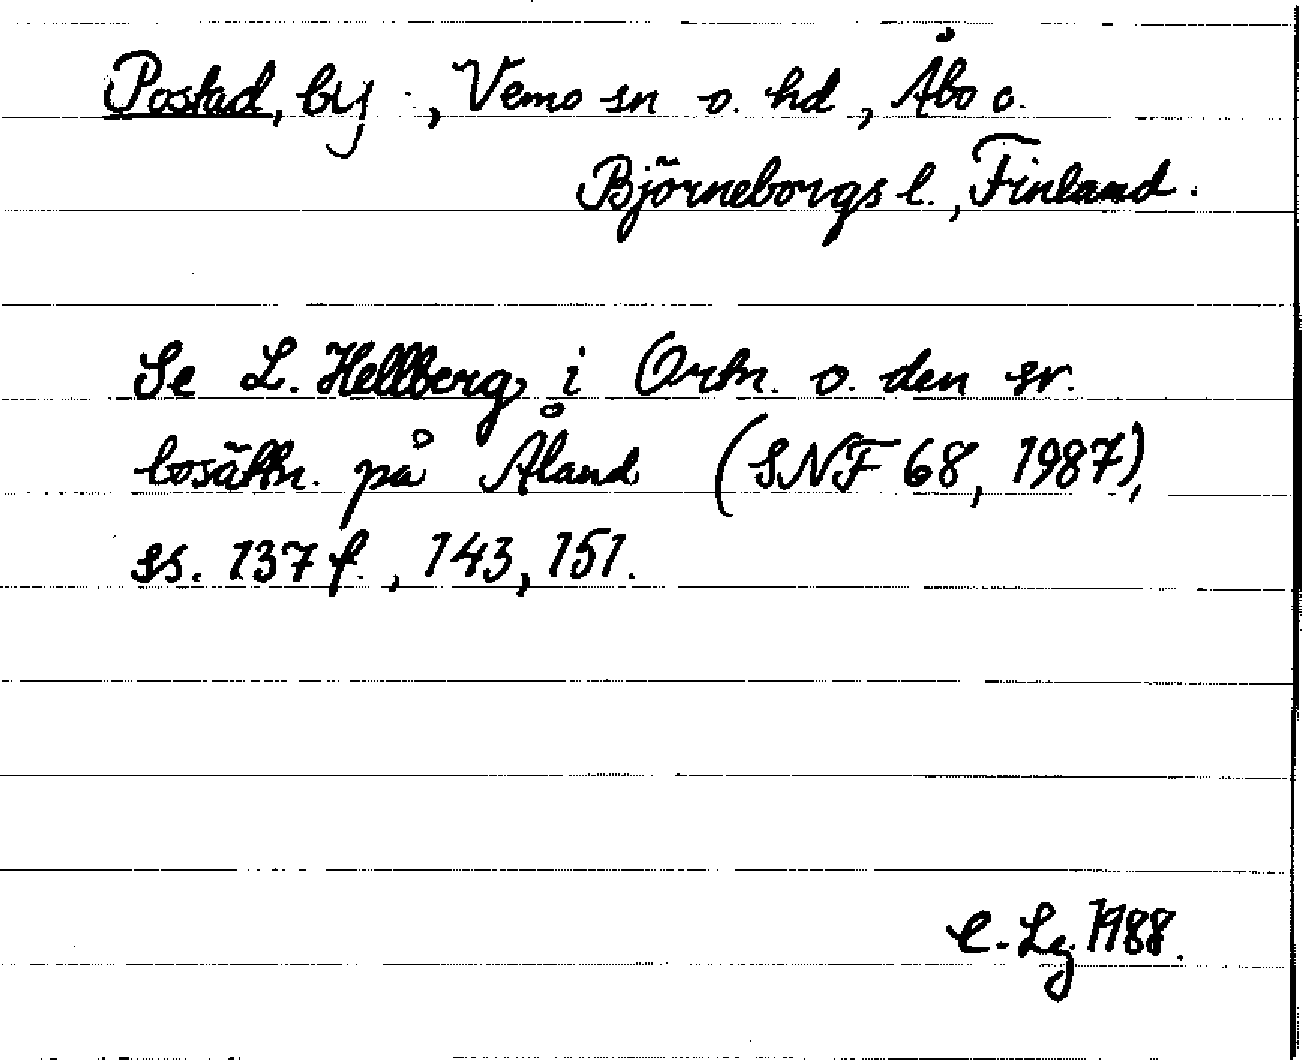 Postad, by, Vemo sn o. hd, Åbo o.
Björneborgs l., Finland.
Se L. Hellberg i Ortn. o. den sv.
bosättn. på Åland (SNF 68, 1987),
ss. 137 f., 143, 151.
C. Lg. 1988.